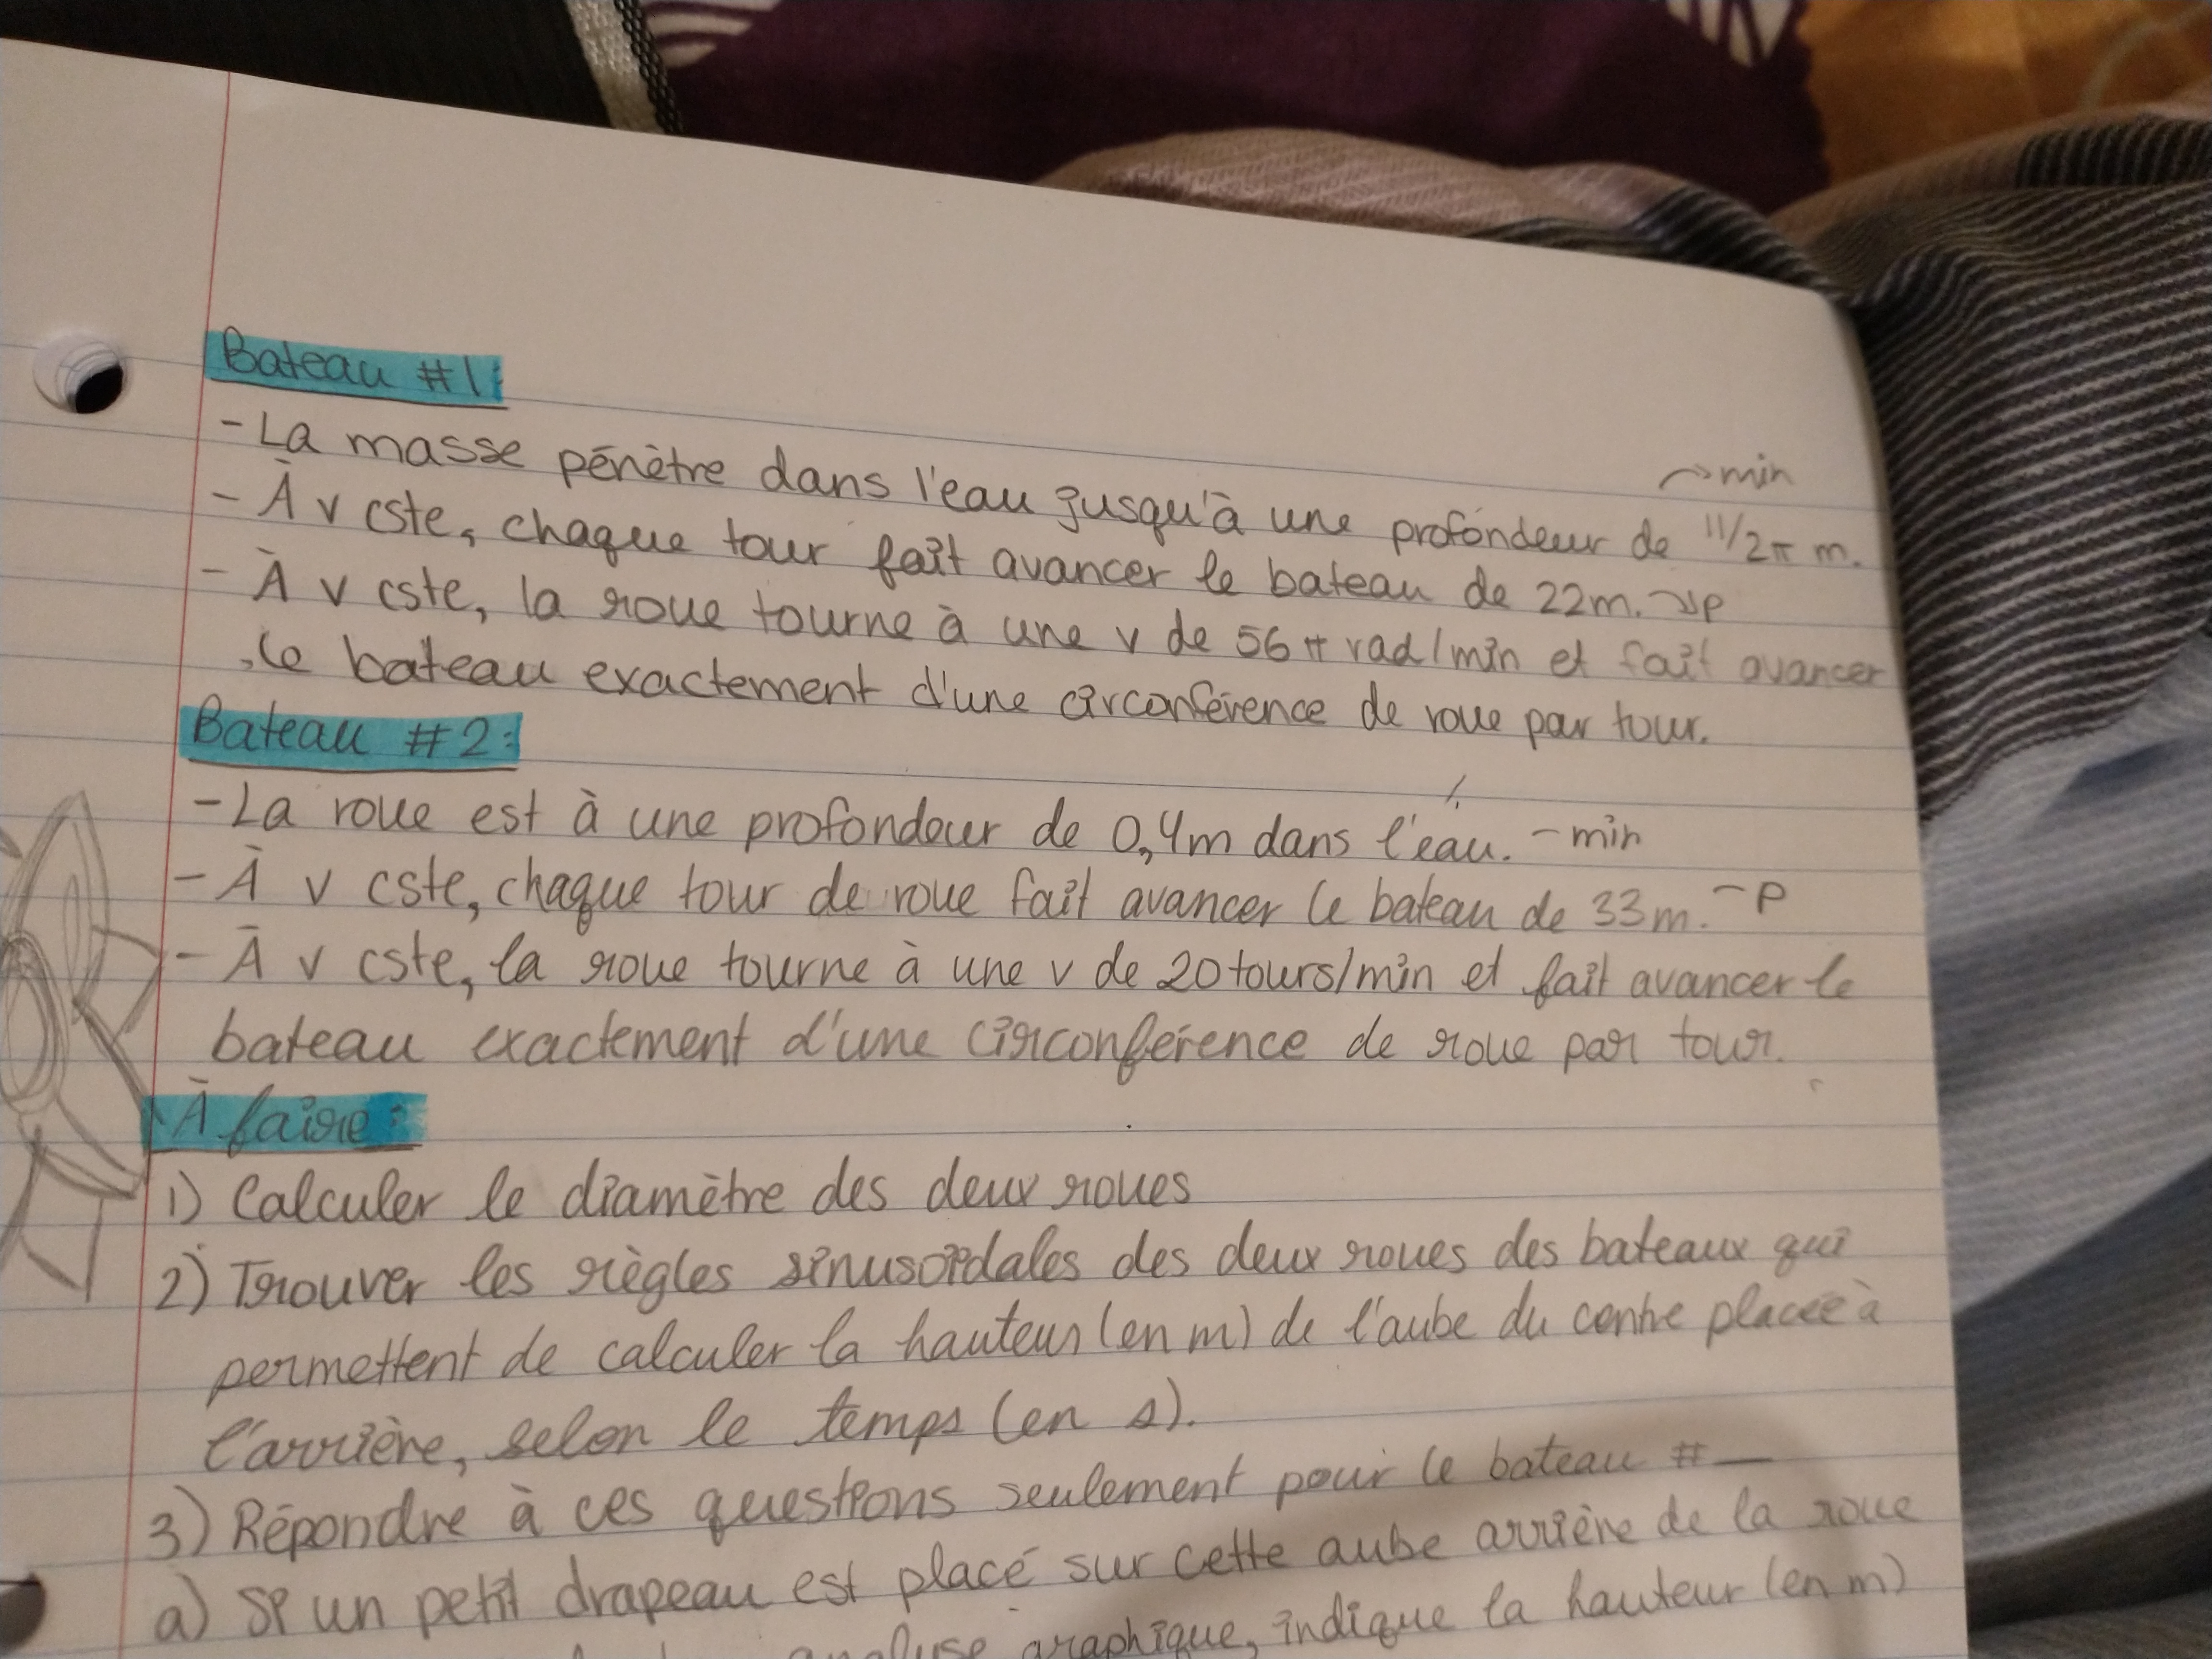 Bateau #1:
- La masse pénètre dans l'eau jusqu'à une profondeur de 11/2π m. → min
- À v cste, chaque tour fait avancer le bateau de 22m. → p
- À v cste, la roue tourne à une v de 56 π rad/min et fait avancer
le bateau exactement d'une circonférence de roue par tour.
Bateau #2:
- La roue est à une profondeur de 0,4m dans l'eau. - min
- À v cste, chaque tour de roue fait avancer le bateau de 33m. - p
- À v cste, la roue tourne à une v de 20 tours/min et fait avancer le
bateau exactement d'une circonférence de roue par tour.
À faire:
1) Calculer le diamètre des deux roues
2) Trouver les règles sinusoïdales des deux roues des bateaux qui
permettent de calculer la hauteur (en m) de l'aube du centre placée à
l'arrière, selon le temps (en s).
3) Répondre à ces questions seulement pour le bateau #__
a) Si un petit drapeau est placé sur cette aube arrière de la roue
analyse graphique, indique la hauteur (en m)